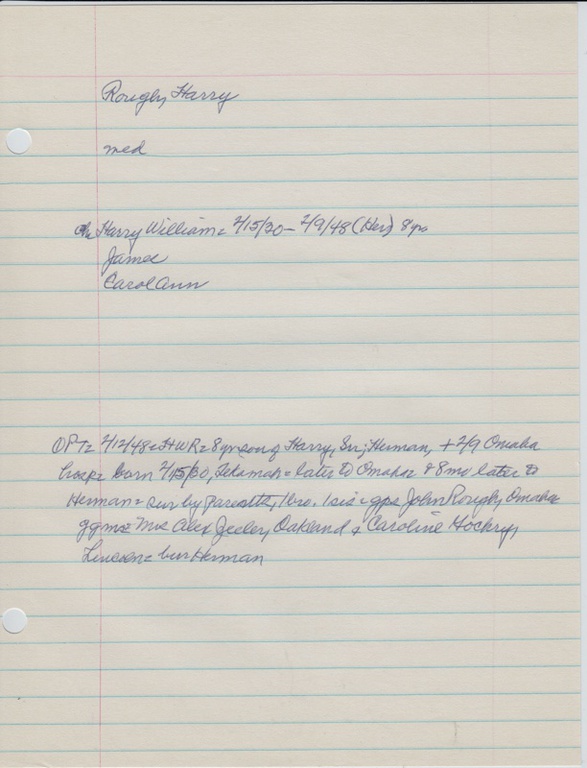 Rougby, Harry
med
ch Harry William = 2/15/30 - 2/9/48 (Her) 8yo
James
Carol Ann
OPT= 2/12/48= HWR= 8yr son of Harry, Sr; Herman, + 2/9 Omaha
hosp= born 2/15/30, Tekamah= later to Omaha & 8mo later to
Herman= sur by parents, 1 bro. 1 sis= gps John Rougby Omaha
ggms= Mrs Alex Omaha Oakland & Caroline
= bur Herman